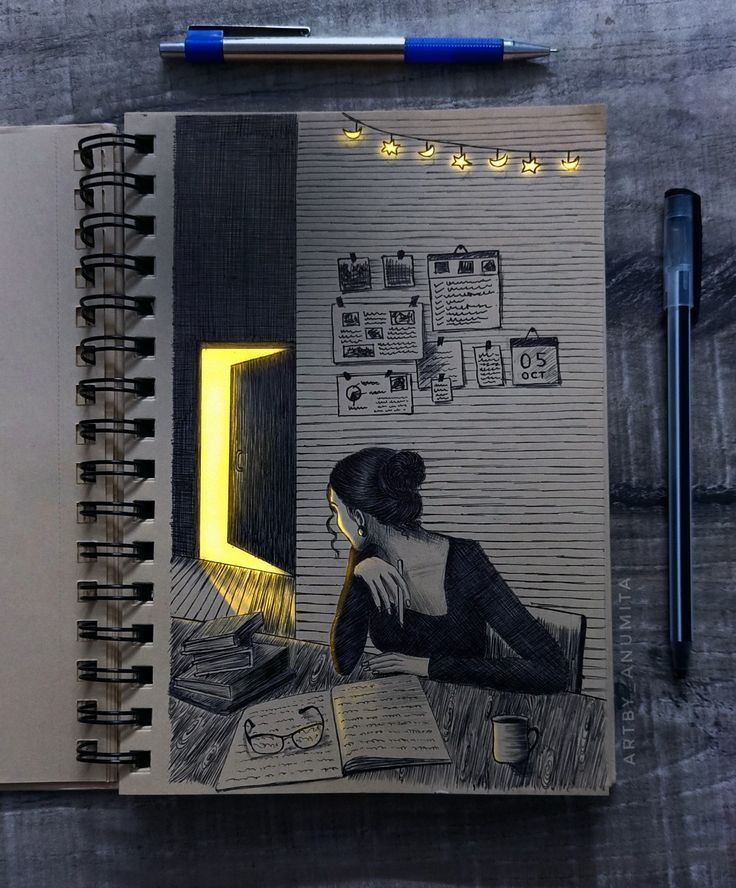 05
OCT
ARTBY_ANUMITA